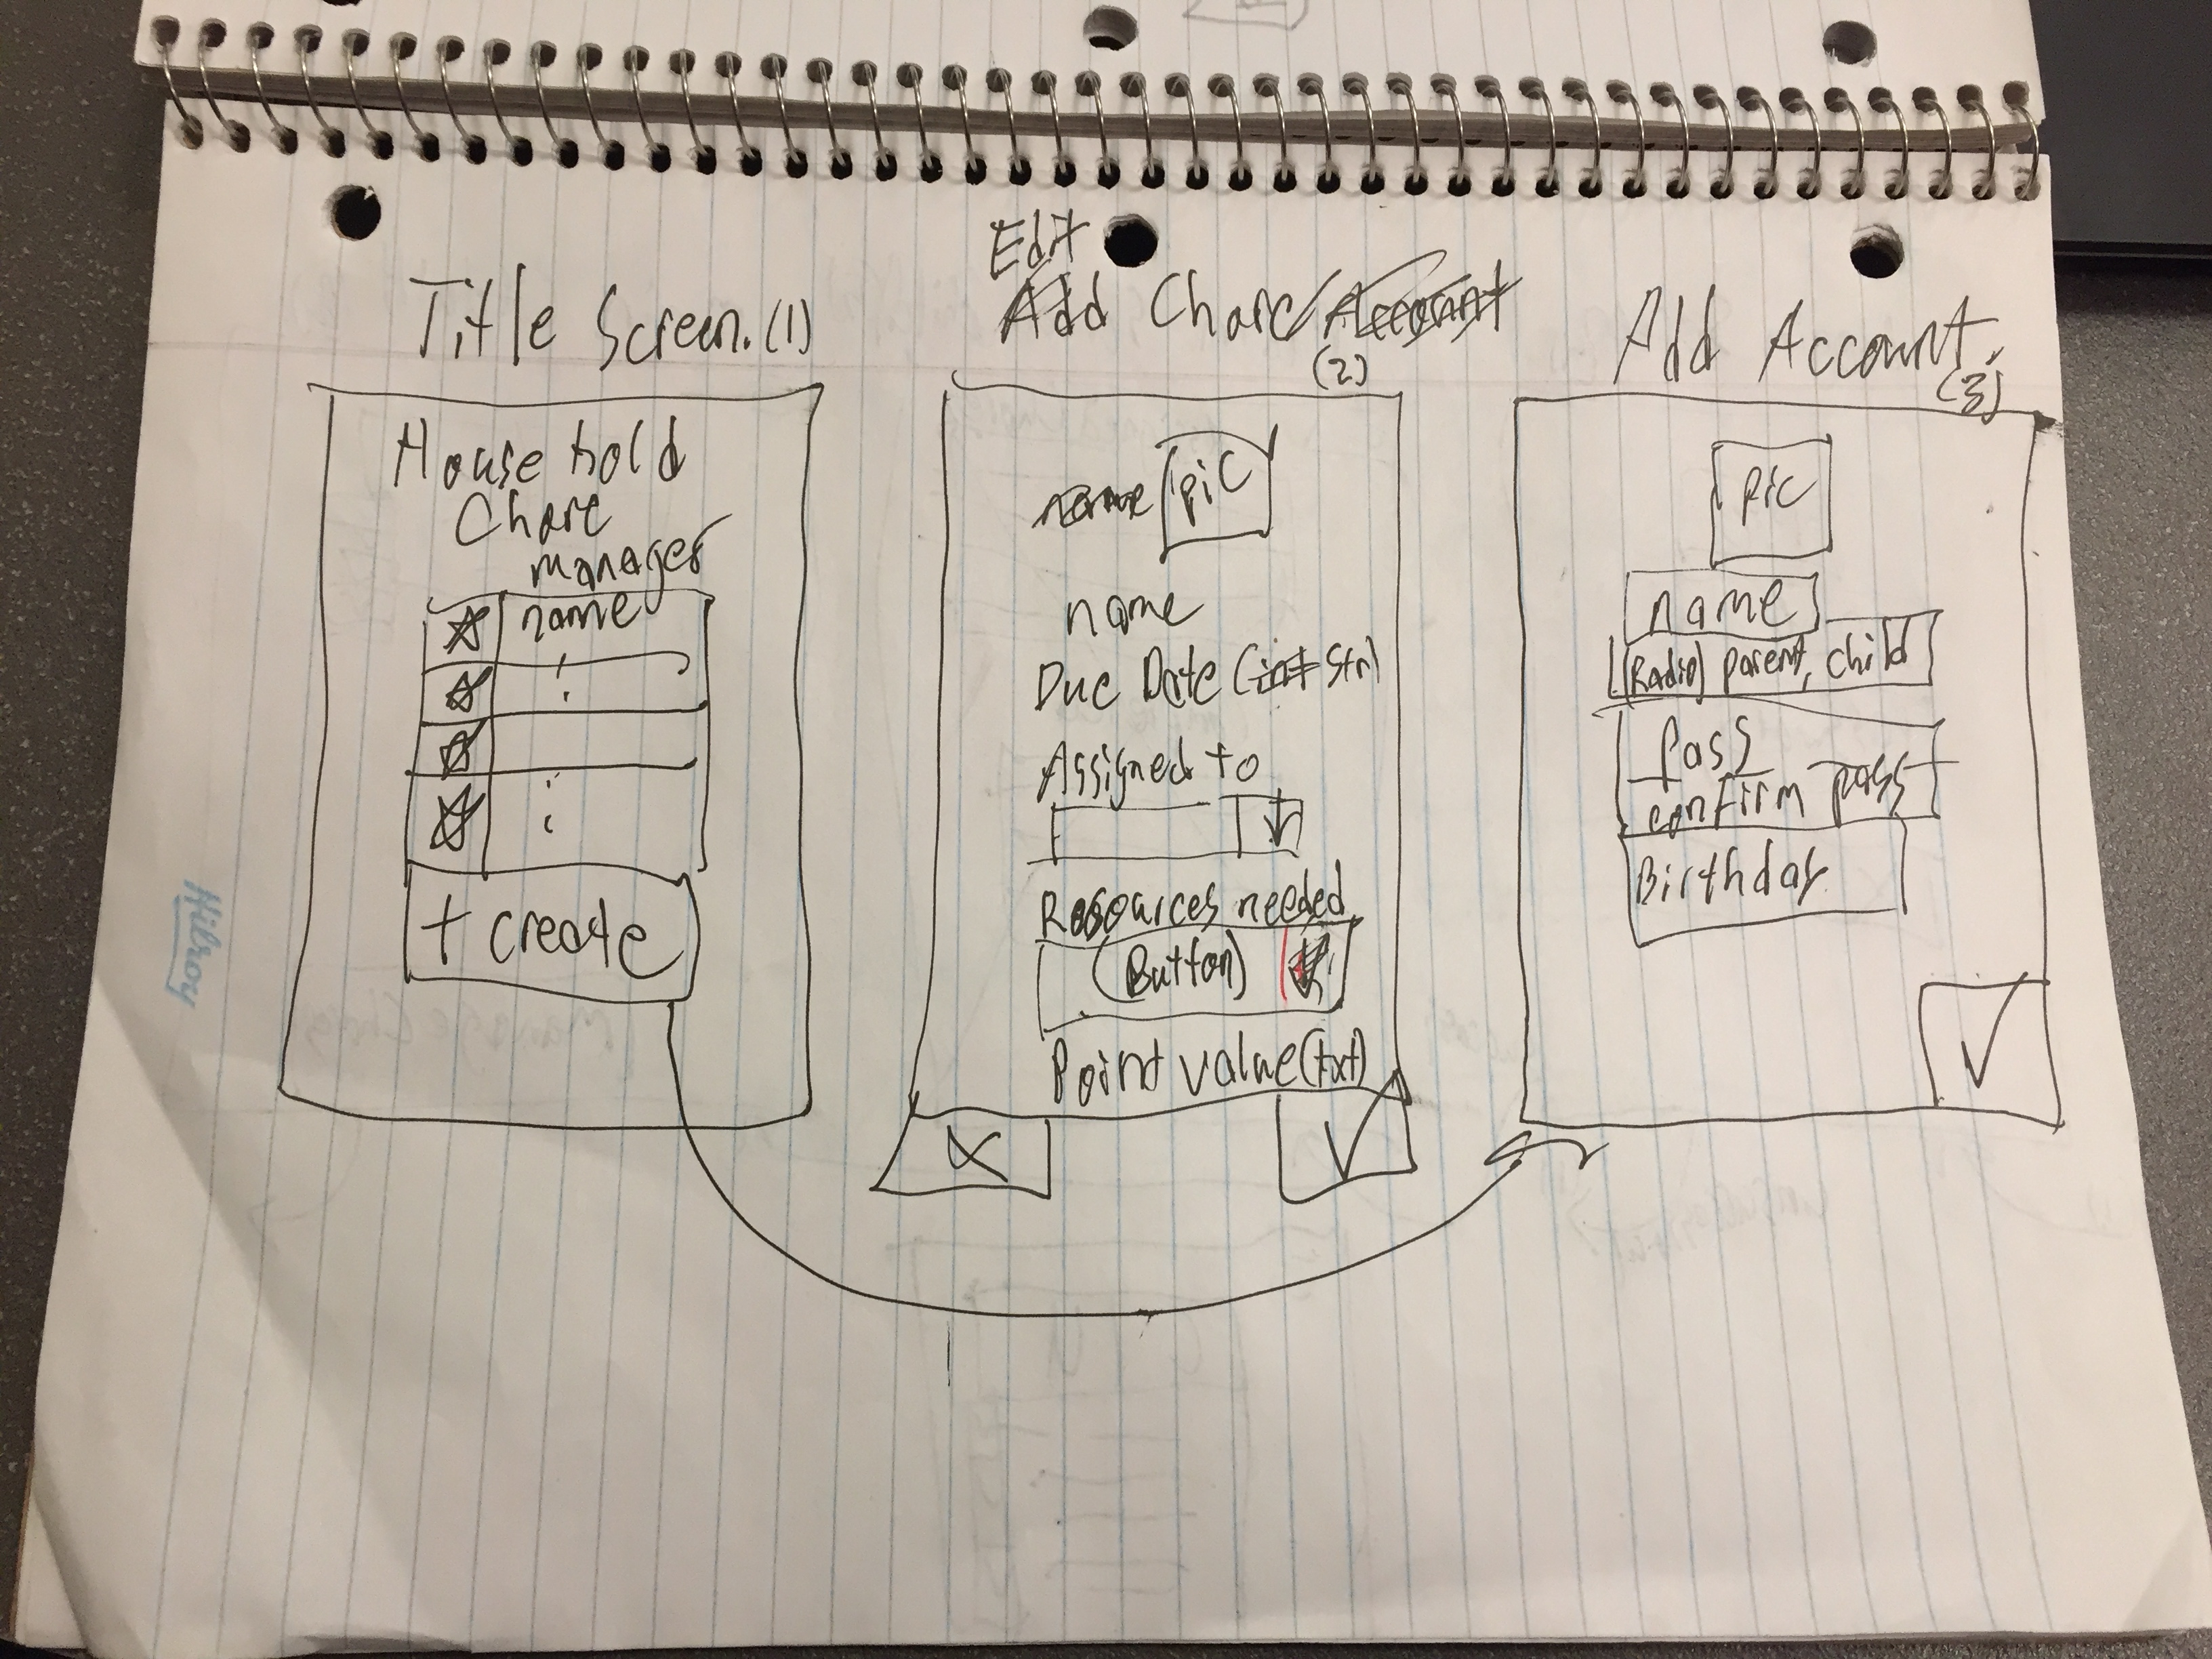 Title Screen. (1)
Household
Chore
manager
name
+ create
Edit
Add Chore/Account
(2)
name pic
name
Due Date (int str)
Assigned to
Resources needed
(Button)
Point value (txt)
X
Add Account
(3)
pic
name
Radio parent, child
Pass
confirm pass
Birthday
Hilroy